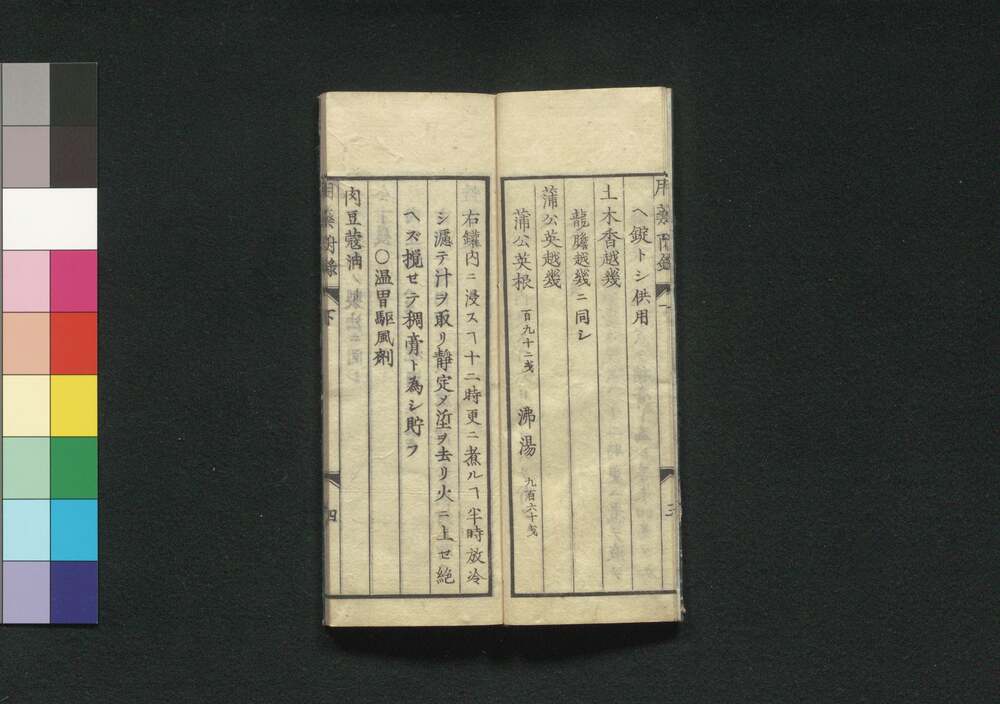 ヘ錠トシ供用
土木香越幾
龍膽越幾ニ同シ
蒲公英越幾
蒲公英根 百九十二戔 沸湯 九百六十戔
右鑵内ニ浸スヿ十二時更ニ煮ルヿ半時放冷
シ漉テ汁ヲ取リ静定メ滓ヲ去リ火ニ上セ絶
ヘズ攪セテ稠膏ト為シ貯フ
〇温胃駆風剤
肉豆蔲油
下
四